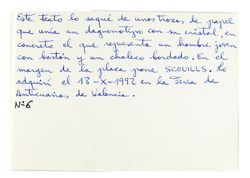 Este texto lo saqué de unos trozos de papel
que unía un daguerrotipo con su cristal, en
concreto el que representa un hombre joven
con bastón y un chaleco bordado. En el
margen de la placa pone SCOVILLS. Lo
adquirí el 18-X-1992 en la Feria de
Anticuarios de Valencia.
Nº6